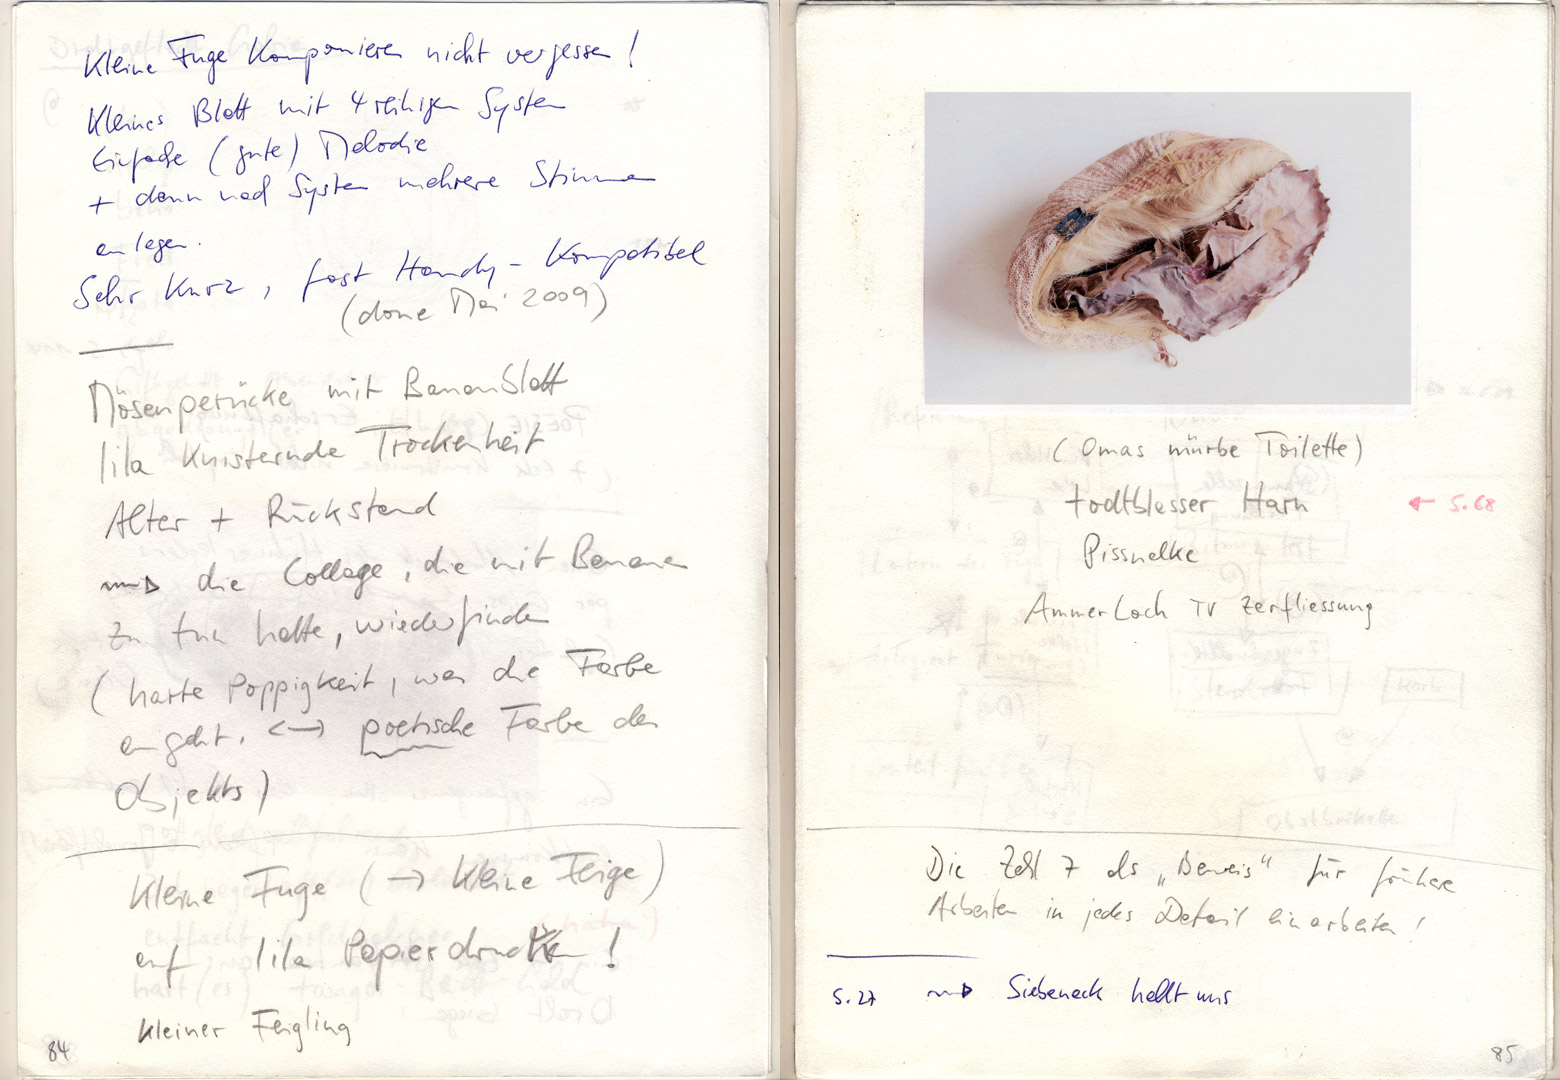 Kleine Fuge Komponieren nicht vergessen!
Kleines Blatt mit 4 reihigen System
Einfache (gute) Melodie
+ dann nach System mehrere Stimmen
anlegen.
Sehr Kurz, fast Handy-Kompatibel
(done Mai 2009)
Mösenperücke mit Bananblatt
lila Knisternde Trockenheit
Alter + Rückstand
die Collage, die mit Bananen
zu tun hatte, wiederfinden
(harte Poppigkeit, was die Farbe
angeht. <–> poetische Farbe des
Objekts)
Kleine Fuge (→ Kleine Feige)
auf lila Papier drucken!
Kleiner Feigling
84
(Omas mürbe Toilette)
todtblasser Harn ← S.68
Pissnelke
AmmerLoch TV Zerfliessung
Die Zahl 7 als „Beweis“ für frühere
Arbeiten in jedes Detail einarbeiten!
S.27 Siebeneck hallt uns
85